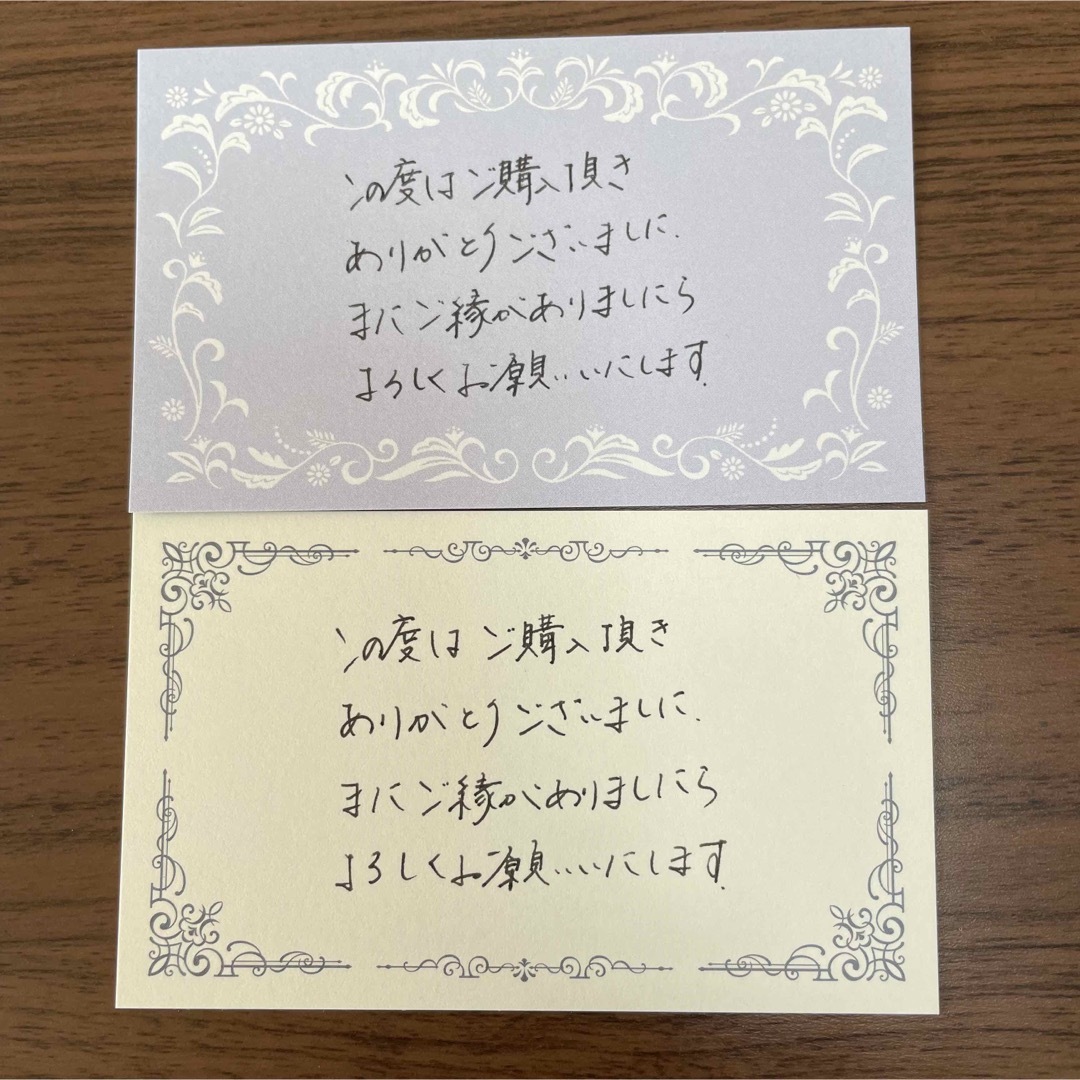 この度はご購入頂き
ありがとうございました.
またご縁がありましたら
よろしくお願いいたします.
この度はご購入頂き
ありがとうございました.
またご縁がありましたら
よろしくお願いいたします.